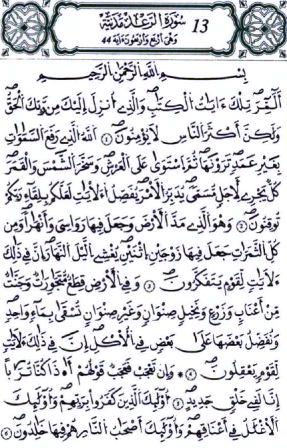 13 سُورَةُ الرَّعْدِ مَدَنِيَّة
وَهِيَ أَرْبَعٌ وَأَرْبَعُونَ ءَايَة 44
بِسْمِ اللَّهِ الرَّحْمَٰنِ الرَّحِيمِ
أَلَٓمِّٓر تِلْكَ ءَايَٰتُ الْكِتَٰبِ وَالذِے أُنزِلَ إِلَيْكَ مِن رَّبِّكَ الْحَقُّ
وَلَٰكِنَّ أَكْثَرَ النَّاسِ لَا يُومِنُونَ ۝ اللَّهُ الذِے رَفَعَ السَّمَٰوَٰتِ
بِغَيْرِ عَمَدٍ تَرَوْنَهَا ثُمَّ اسْتَوَىٰ عَلَى الْعَرْشِ وَسَخَّرَ الشَّمْسَ وَالْقَمَرَ
كُلٌّ يَجْرِے لِأَجَلٍ مُّسَمًّى يُدَبِّرُ الْأَمْرَ يُفَصِّلُ الْآيَٰتِ لَعَلَّكُم بِلِقَآءِ رَبِّكُمْ
تُوقِنُونَ ۝ وَهُوَ الذِے مَدَّ الْأَرْضَ وَجَعَلَ فِيهَا رَوَٰسِيَ وَأَنْهَٰرًا وَمِن
كُلِّ الثَّمَرَٰتِ جَعَلَ فِيهَا زَوْجَيْنِ اثْنَيْنِ يُغْشِے الَّيْلَ النَّهَارَ إِنَّ فِي ذَٰلِكَ
لَآيَٰتٍ لِّقَوْمٍ يَتَفَكَّرُونَ ۝ وَفِي الْأَرْضِ قِطَعٌ مُّتَجَٰوِرَٰتٌ وَجَنَّٰتٌ
مِّنْ أَعْنَٰبٍ وَزَرْعٍ وَنَخِيلٍ صِنْوَانٍ وَغَيْرِ صِنْوَانٍ تُسْقَىٰ بِمَآءٍ وَٰحِدٍ
وَنُفَضِّلُ بَعْضَهَا عَلَىٰ بَعْضٍ فِي الْأُكْلِ إِنَّ فِي ذَٰلِكَ لَآيَٰتٍ
لِّقَوْمٍ يَعْقِلُونَ ۝ وَإِن تَعْجَبْ فَعَجَبٌ قَوْلُهُمْ أَ.ذَا كُنَّا تُرَٰبًا
إِنَّا لَفِي خَلْقٍ جَدِيدٍ ۝ أُوْلَٰٓئِكَ الذِينَ كَفَرُوا بِرَبِّهِمْ وَأُوْلَٰٓئِكَ
الْأَغْلَٰلُ فِي أَعْنَاقِهِمْ وَأُوْلَٰٓئِكَ أَصْحَٰبُ النَّارِ هُمْ فِيهَا خَٰلِدُونَ